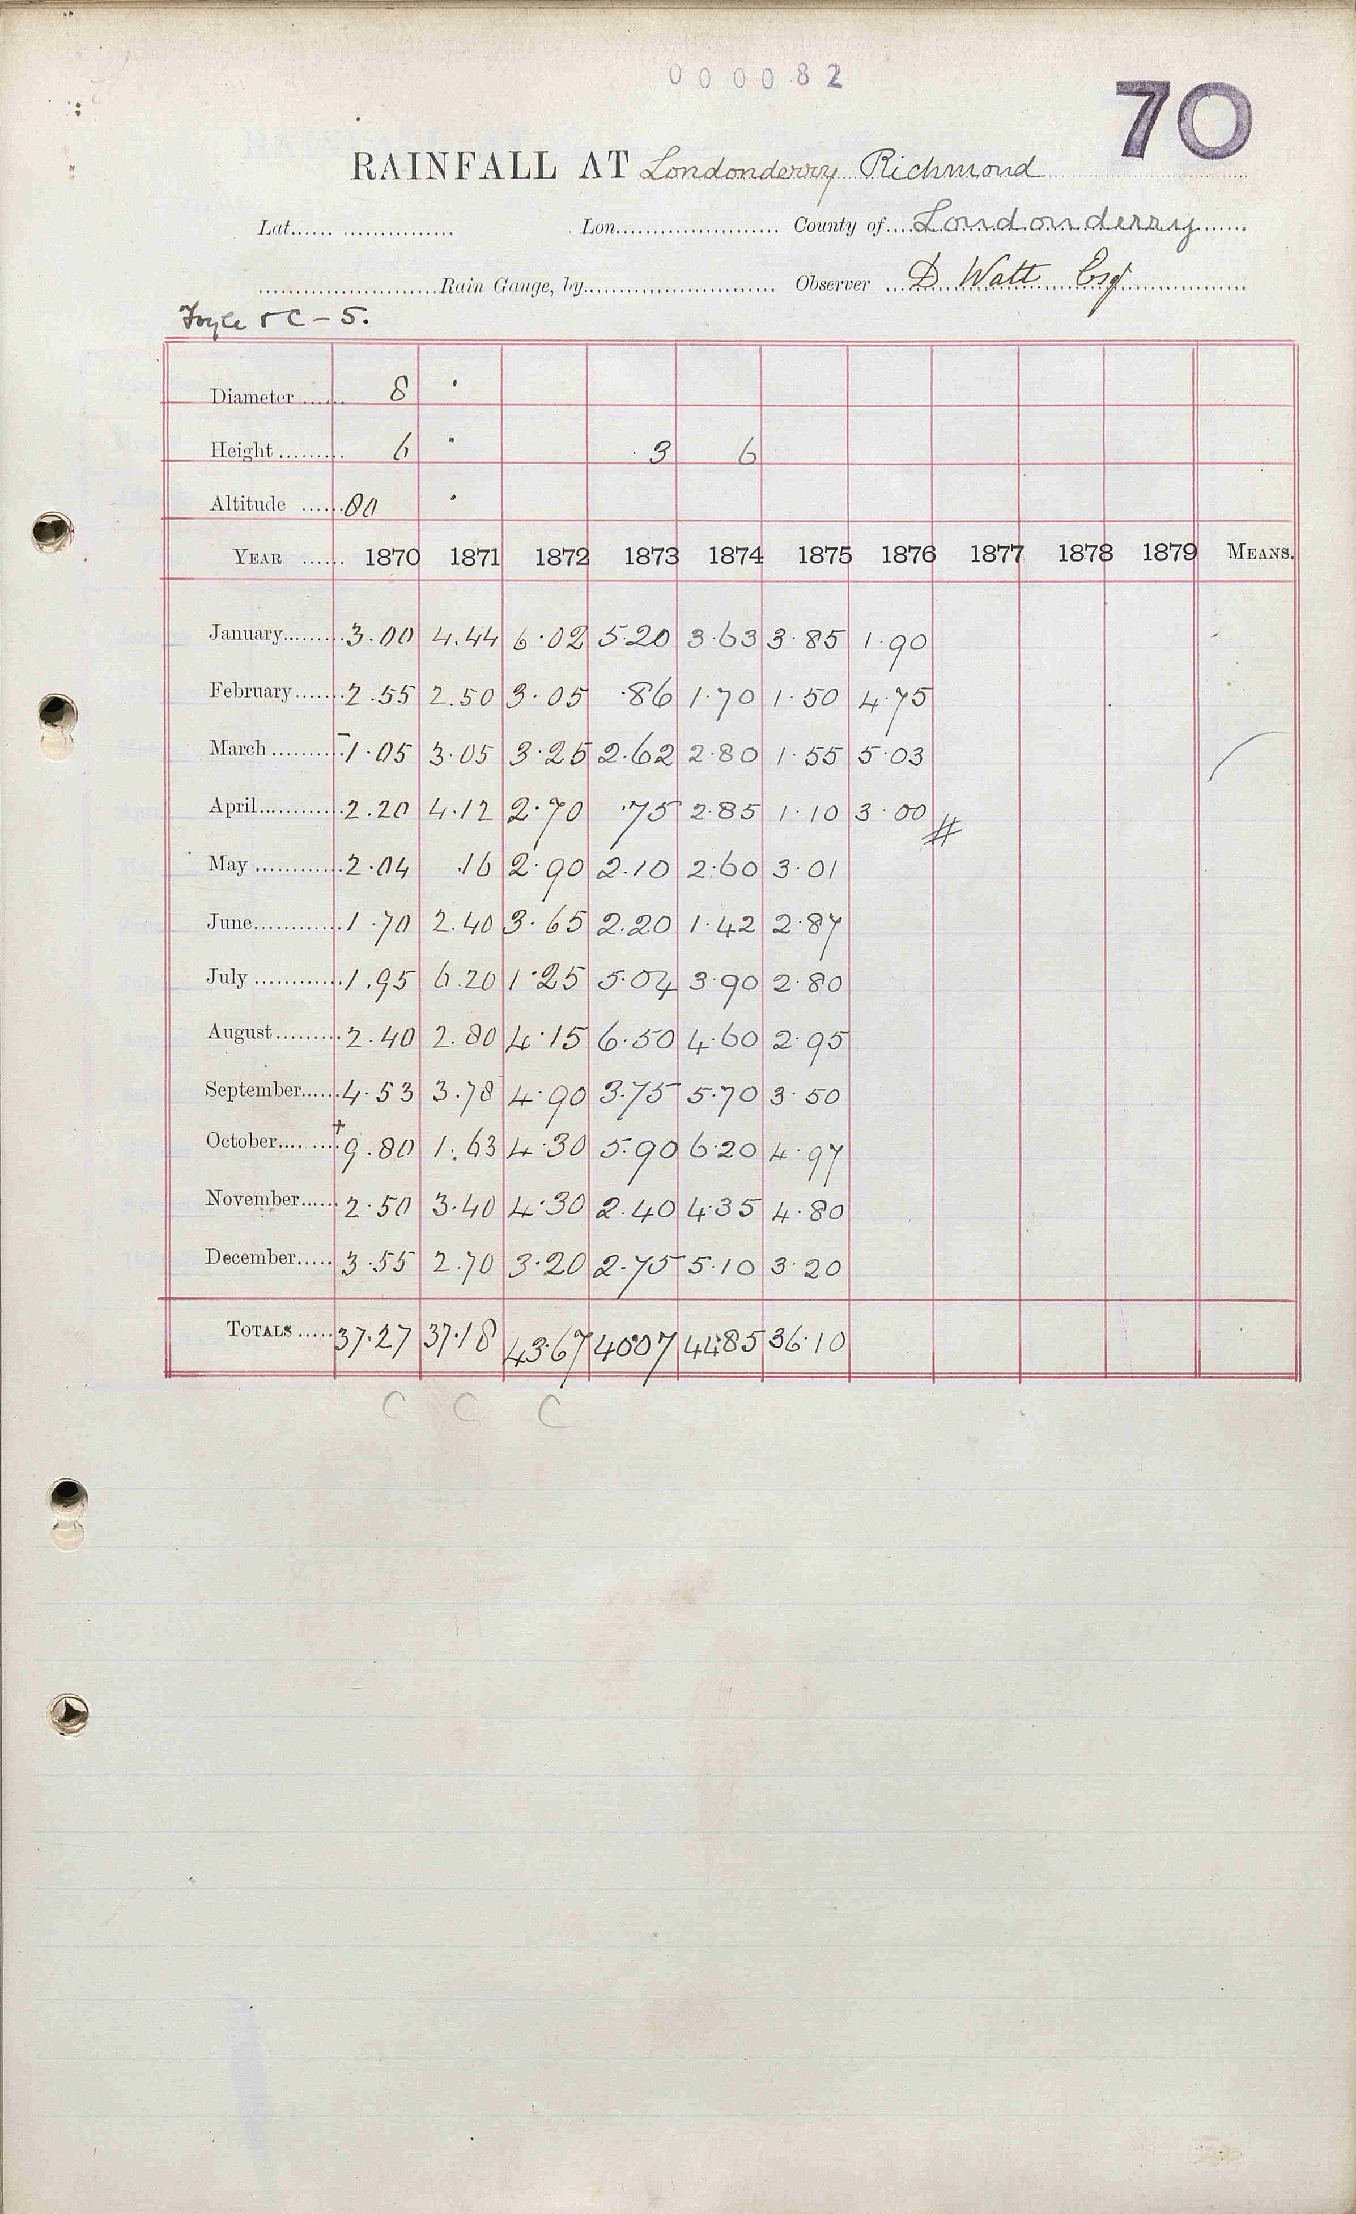 000082
70
RAINFALL AT Londonderry Richmond
Lat. Lon. County of Londonderry
Rain Gauge, by Observer D Watt Esq
Foyle & C - 5.
Diameter 8
Height 6 3 6
Altitude 80
YEAR 1870 1871 1872 1873 1874 1875 1876 1877 1878 1879 MEANS.
January 3.00 4.44 6.02 5.20 3.63 3.85 1.90
February 2.55 2.50 3.05 .86 1.70 1.50 4.75
March 1.05 3.05 3.25 2.62 2.80 1.55 5.03
April 2.20 4.12 2.70 .75 2.85 1.10 3.00 #
May 2.04 .16 2.90 2.10 2.60 3.01
June 1.70 2.40 3.65 2.20 1.42 2.87
July 1.95 6.20 1.25 5.04 3.90 2.80
August 2.40 2.80 4.15 6.50 4.60 2.95
September 4.53 3.78 4.90 3.75 5.70 3.50
October +9.80 1.63 4.30 5.90 6.20 4.97
November 2.50 3.40 4.30 2.40 4.35 4.80
December 3.55 2.70 3.20 2.75 5.10 3.20
TOTALS 37.27 37.18 43.67 40.07 44.85 36.10
C C C